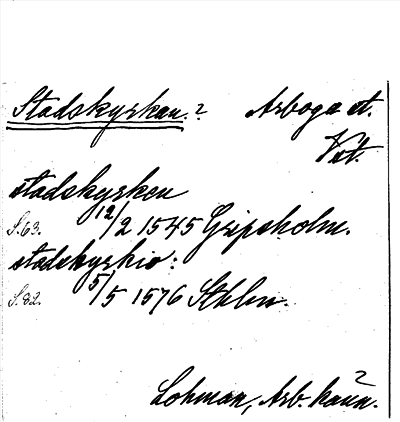 Stadskyrkan.? Arboga st.
Vst.
stadskyrken
S. 63. 12/2 1545 Gripsholm.
stadskyrkio:
S. 82. 5/5 1576 Sthlm.
2
Lohman, Arb. känn.